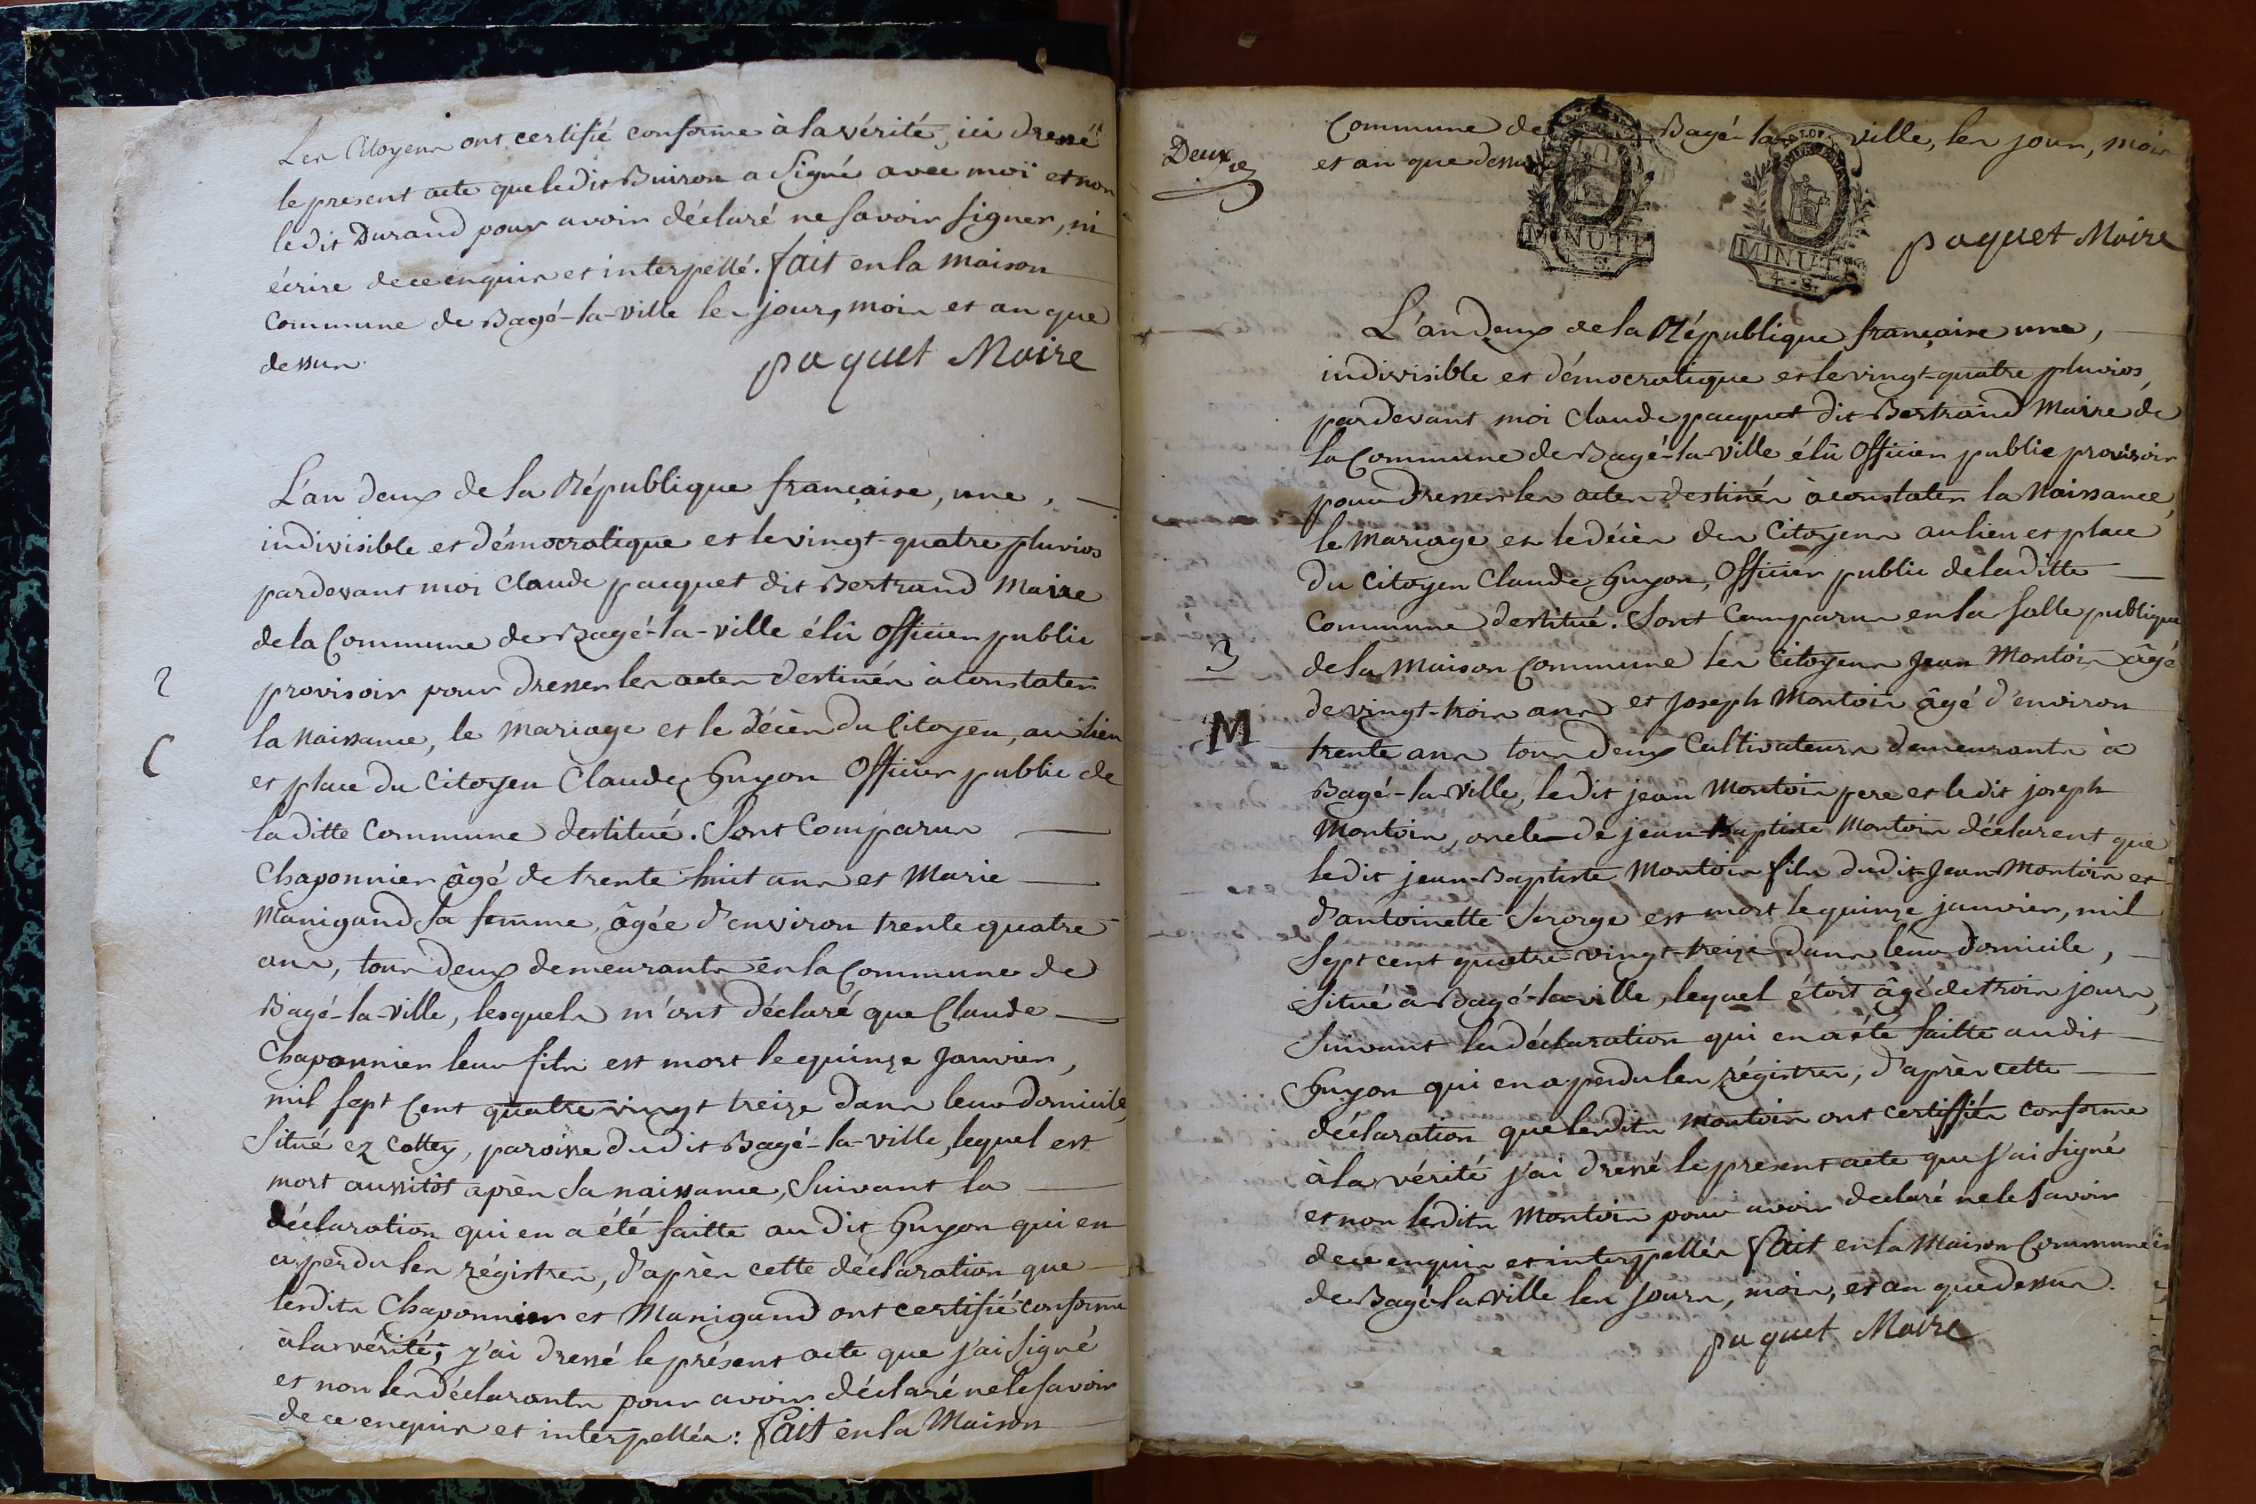 Les Citoyens ont certifié conforme à la vérité, j'ai dressé
le present acte que ledit Buiron a Signé avec moi et non
ledit Durand pour avoir déclaré ne savoir signer, ni
écrire de ce enquis et interpellé. fait en la maison
Commune de Bagé-la-ville les jour, mois et an que
dessus.
paquet Maire
L'an deux de la République française, une,
indivisible et démocratique et le vingt-quatre pluvios
pardevant moi Claude pacquet dit Bertrand Maire
de la Commune de Bagé-la-ville élû Officier public
2
provisoir pour dresser les actes destinés à constater
la Naissance, le mariage et le décès du Citoyen, au lieu
C
et place du Citoyen Claude Guyon Officier public de
laditte Commune destitué. Sont Comparus
Chaponnier âgé de trente huit ans et Marie
Manigand sa femme, âgée d'environ trente quatre
ans, tous deux demeurants en la Commune de
Bagé-la-ville, lesquels m'ont déclaré que Claude
Chaponnier leur fils est mort le quinze Janvier,
mil sept Cent quatre vingt treize dans leur domicile,
Situé ez Cottey, paroisse dudit Bagé-la-ville, lequel est
mort aussitôt après sa naissance, Suivant la
déclaration qui en a été faitte au dit Guyon qui en
a perdu les régistres, d'après cette déclaration que
lesdits Chaponnier et Manigand ont certifié conforme
à la vérité, j'ai dressé le présent acte que j'ai signé
et non les déclarants pour avoir déclaré ne le savoir
de ce enquis et interpellés: fait en la Maison
Deux e
Commune de Bagé-la-ville, les jour, mois
et an que dessus
MINUTE
MINUTE
4. S.
paquet Maire
L'an deux de la République française une,
indivisible et démocratique et le vingt-quatre pluvios
pardevant moi Claude pacquet dit Bertrand Maire de
la Commune de Bagé-la-ville élû Officier public provisoir
pour dresser les actes destinés à constater la Naissance,
le Mariage et le décès des Citoyens au lieu et place
du Citoyen Claude Guyon, Officier public de laditte
Commune destitué. Sont Comparus en la salle publique
3
de la Maison Commune les Citoyens Jean Montoin âgé
de vingt-trois ans et Joseph Montoin âgé d'environ
M
trente ans tous deux Cultivateurs demeurants à
Bagé-la-ville, ledit jean Montoin pere et ledit joseph
Montoin, oncle de jean-Baptiste Montoin déclarent que
ledit jean-Baptiste Montoin fils dudit Jean Montoin et
d'antoinette Serorge est mort le quinze janvier, mil
Sept cent quatre-vingt-treize dans leur domicile,
Situé à Bagé-la-ville, lequel étoit âgé de trois jours,
Suivant la déclaration qui en a été faitte audit
Guyon qui en a perdu les régistres, d'après cette
déclaration que lesdits Montoin ont certiffiés conforme
à la vérité j'ai dressé le present acte que j'ai signé
et non lesdits Montoin pour avoir declaré ne le savoir
de ce enquis et interpellés fait en la Maison Commune
de Bagé-la-ville les jours, mois, et an que dessus.
paquet Maire